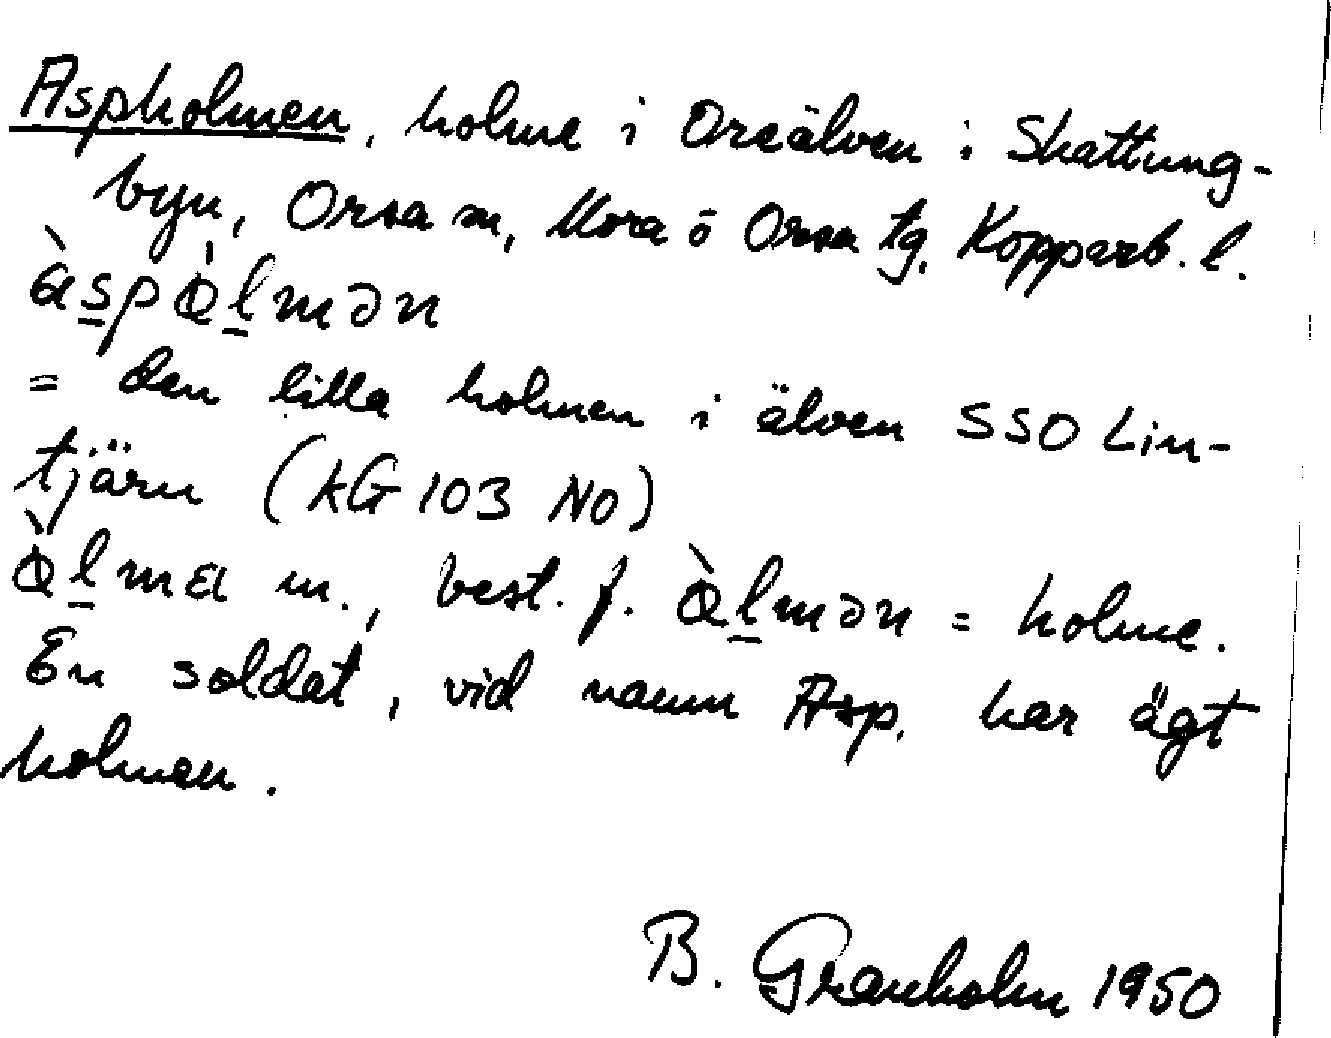 Aspholmen, holme i Oreälven i Skattung-
byn, Orsa sn, Mora ö Orsa tg. Kopparb. l.
àspø̀lmən
= den lilla holmen i älven SSO Lin-
tjärn (kG 103 NO)
ø̀lma m., best. f. ø̀lmən = holme.
En soldat, vid namn Asp, har ägt
holmen.
B. Granholm 1950